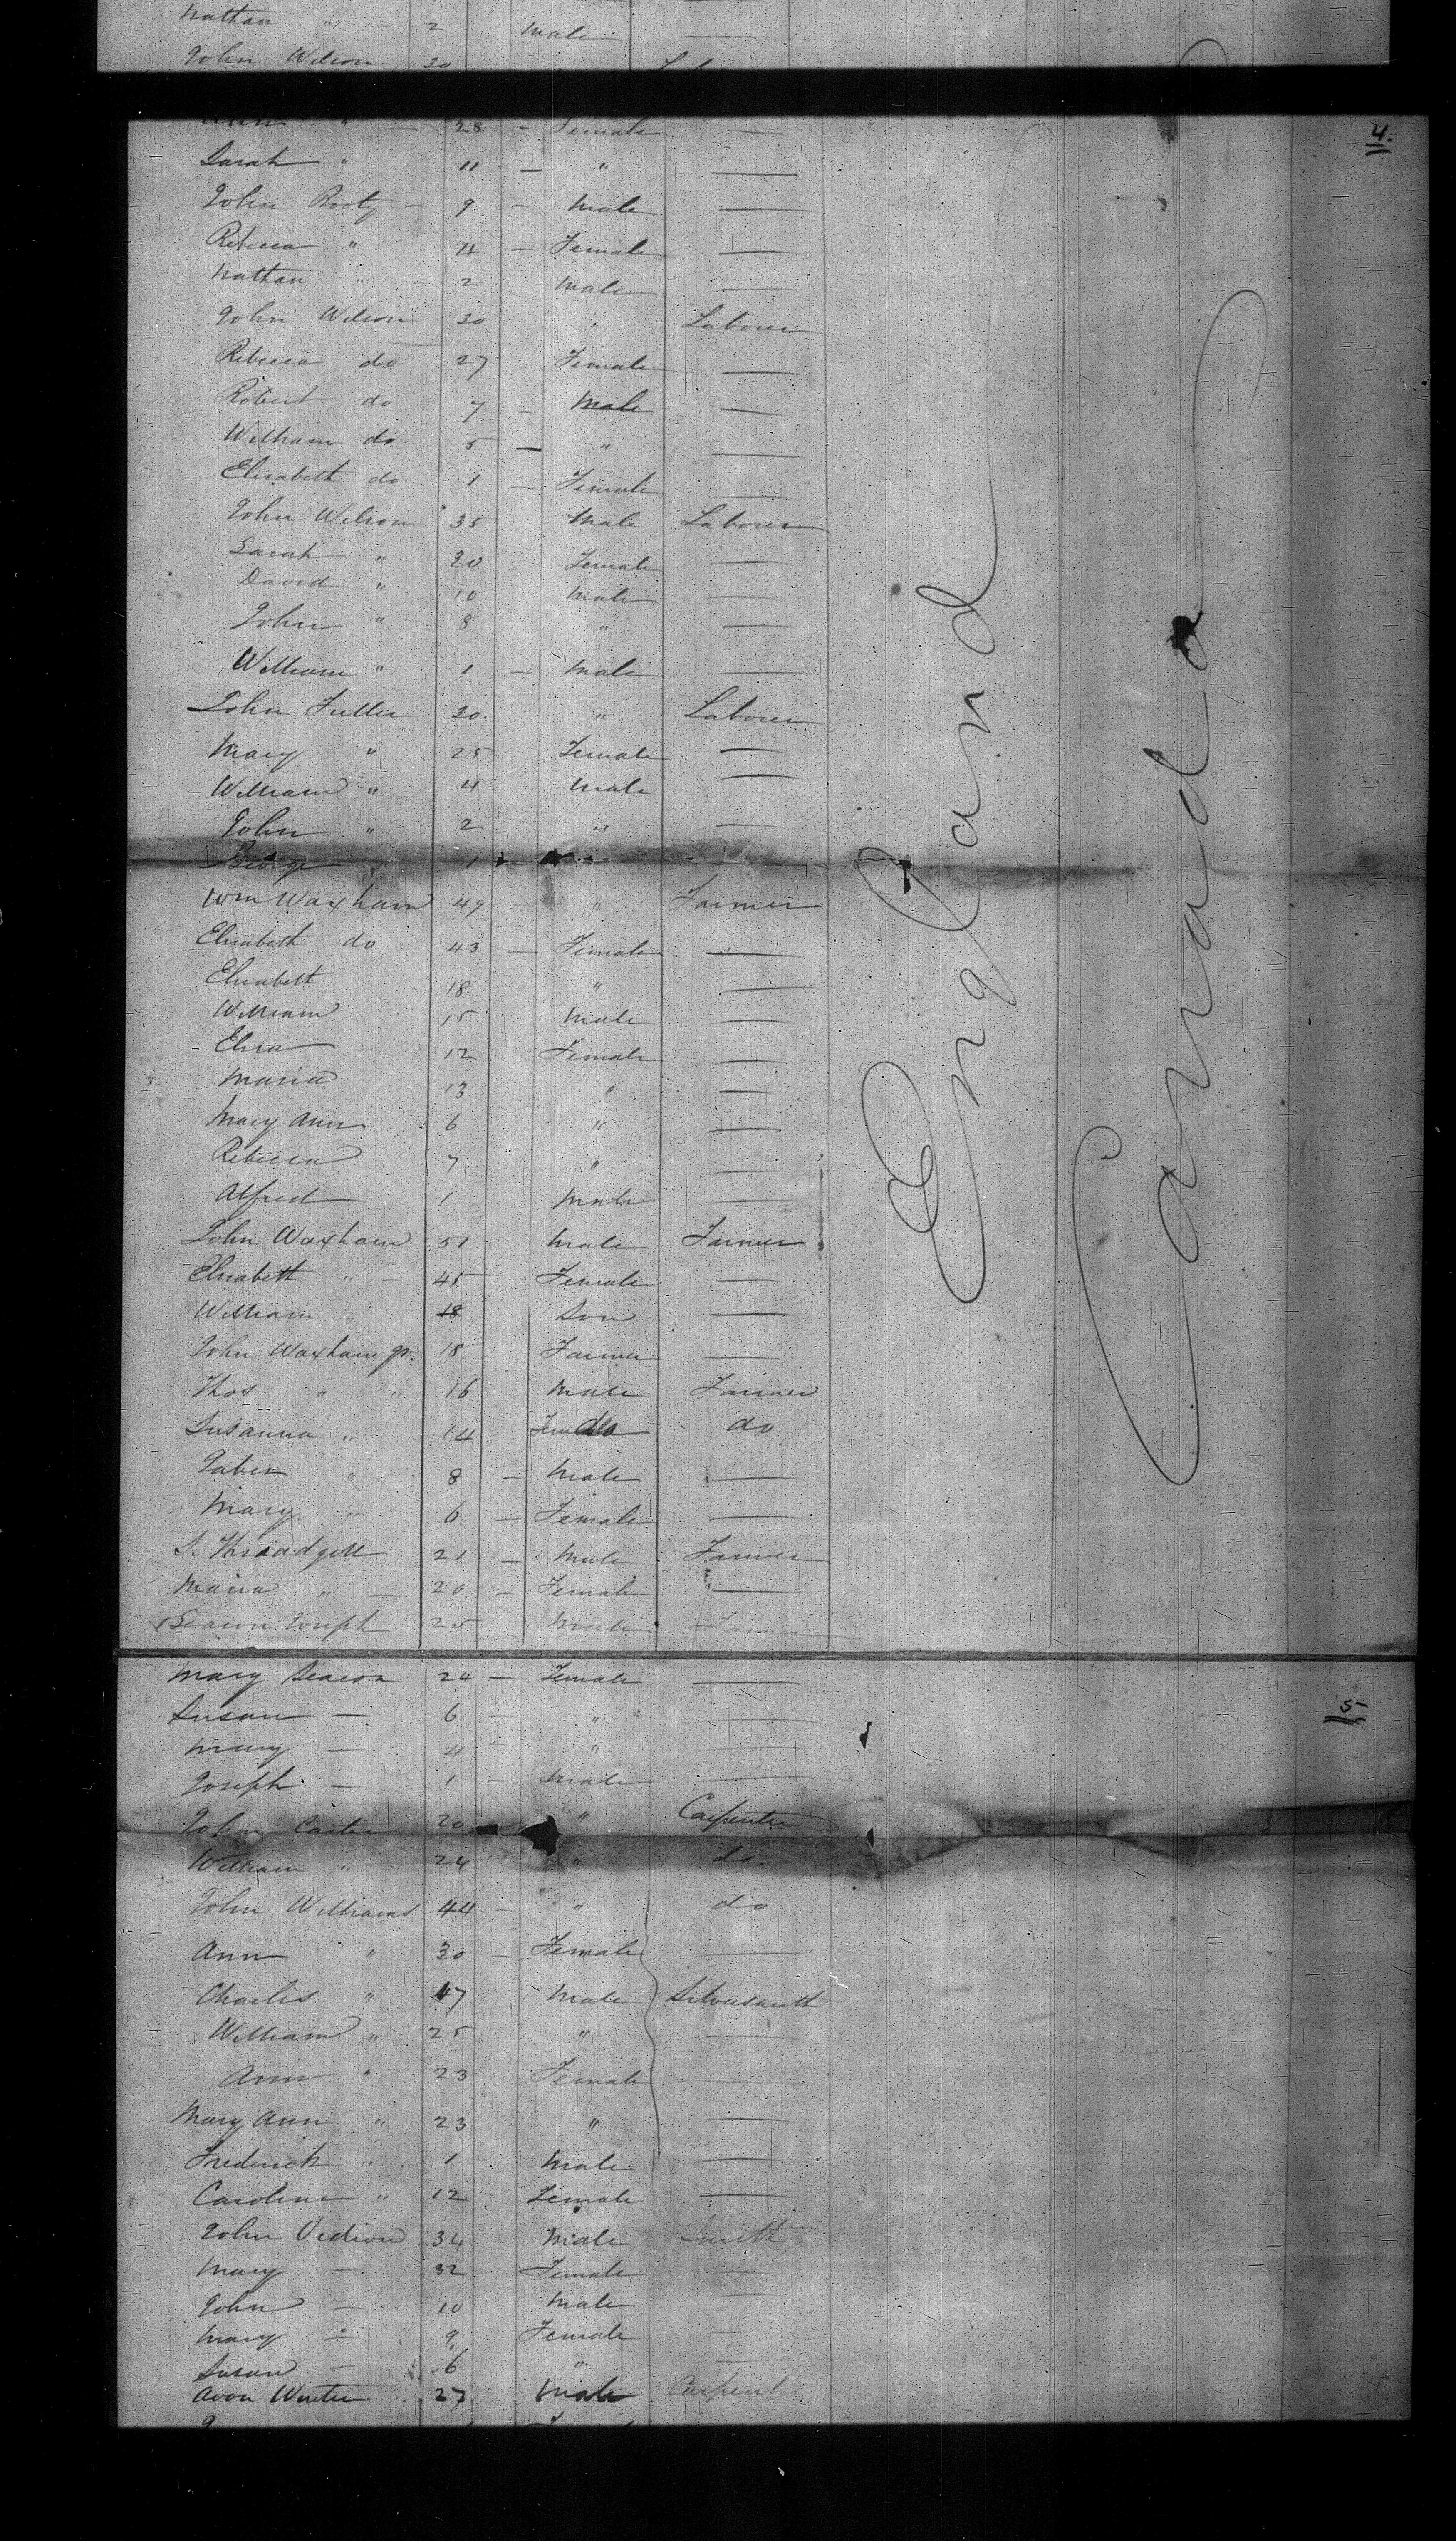 Nathan " 2 Male
John Wilson 30
Ann " 28 Female
Sarah " 11 "
John Rooty 9 Male
Rebecca " 4 Female
Nathan " 2 Male
John Wilson 30 " Laborer
Rebecca do 27 Female
Robert do 7 Male
William do 5 "
Elisabeth do 1 Female
John Wilson 35 Male Laborer
Sarah " 30 Female
David " 10 Male
John " 8 "
William " 1 Male
John Fuller 30 " Laborer
Mary " 25 Female
William " 4 Male
John " 2 "
George " 1 "
Wm Waxham 49 " Farmer
Elisabeth do 43 Female
Elisabeth 18 "
William 15 Male
Eliza 12 Female
Maria 13 "
Mary Ann 6 "
Rebecca 7 "
Alfred 1 Male
John Waxham 51 Male Farmer
Elisabeth " 45 Female
William " 18 Son
John Waxham Jr. 18 Farmer
Thos " " 16 Male Farmer
Susanna " 14 Female do
Jabez " 8 Male
Mary " 6 Female
S. Threadgill 21 Male Farmer
Maria " 20 Female
Seacon Joseph 25 Male Farmer
England
Canada
4.
Mary Seacon 24 Female
Susan 6 "
Mary 4 "
Joseph 1 Male
John Carter 20 " Carpenter
William " 24 " do
John Williams 44 " do
Ann " 30 Female
Charles " 47 Male Silversmith
William " 25 "
Ann " 23 Female
Mary Ann " 23 "
Frederick " 1 Male
Caroline " 12 Female
John Vedion 34 Male Smith
Mary 32 Female
John 10 Male
Mary 9 Female
Susan 6 "
Avon Winter 27 Male Carpenter
5